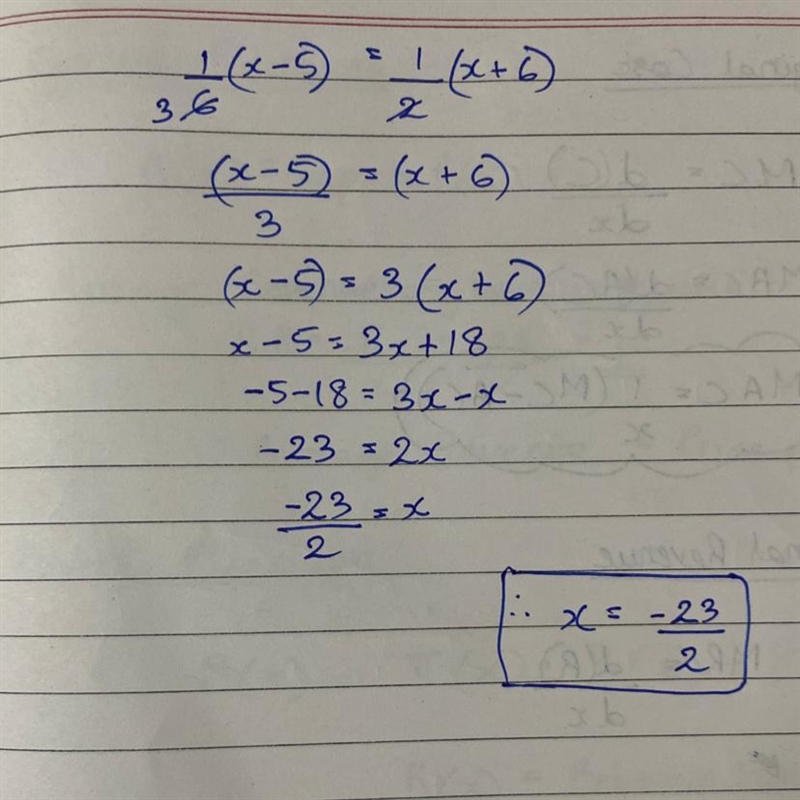 1/6 (x-5) = 1/2 (x+6)
3
(x-5)/3 = (x+6)
(x-5) = 3(x+6)
x-5 = 3x+18
-5-18 = 3x-x
-23 = 2x
-23/2 = x
∴ x = -23/2